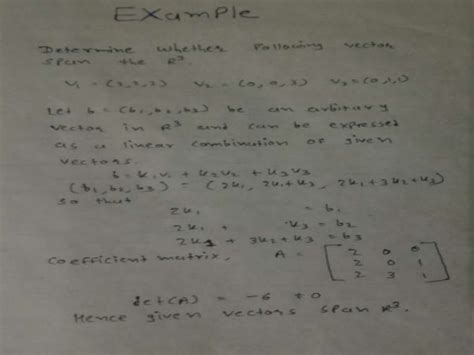 EXample
Determine whether Following vector
span the R³.
V₁ = (2,2,2) V₂ = (0,0,3) V₃ = (0,1,1)
Let b = (b₁, b₂, b₃) be an arbitrary
vector in R³ and can be expressed
as a linear combination of given
vectors.
b = K₁V₁ + K₂V₂ + K₃V₃
(b₁, b₂, b₃) = (2K₁, 2K₁+K₃, 2K₁+3K₂+K₃)
so that
2K₁ = b₁
2K₁ + K₃ = b₂
2K₁ + 3K₂+K₃ = b₃
Coefficient matrix, A = [2 0 0
2 0 1
2 3 1]
det(A) = -6 ≠ 0
Hence given vectors span R³.